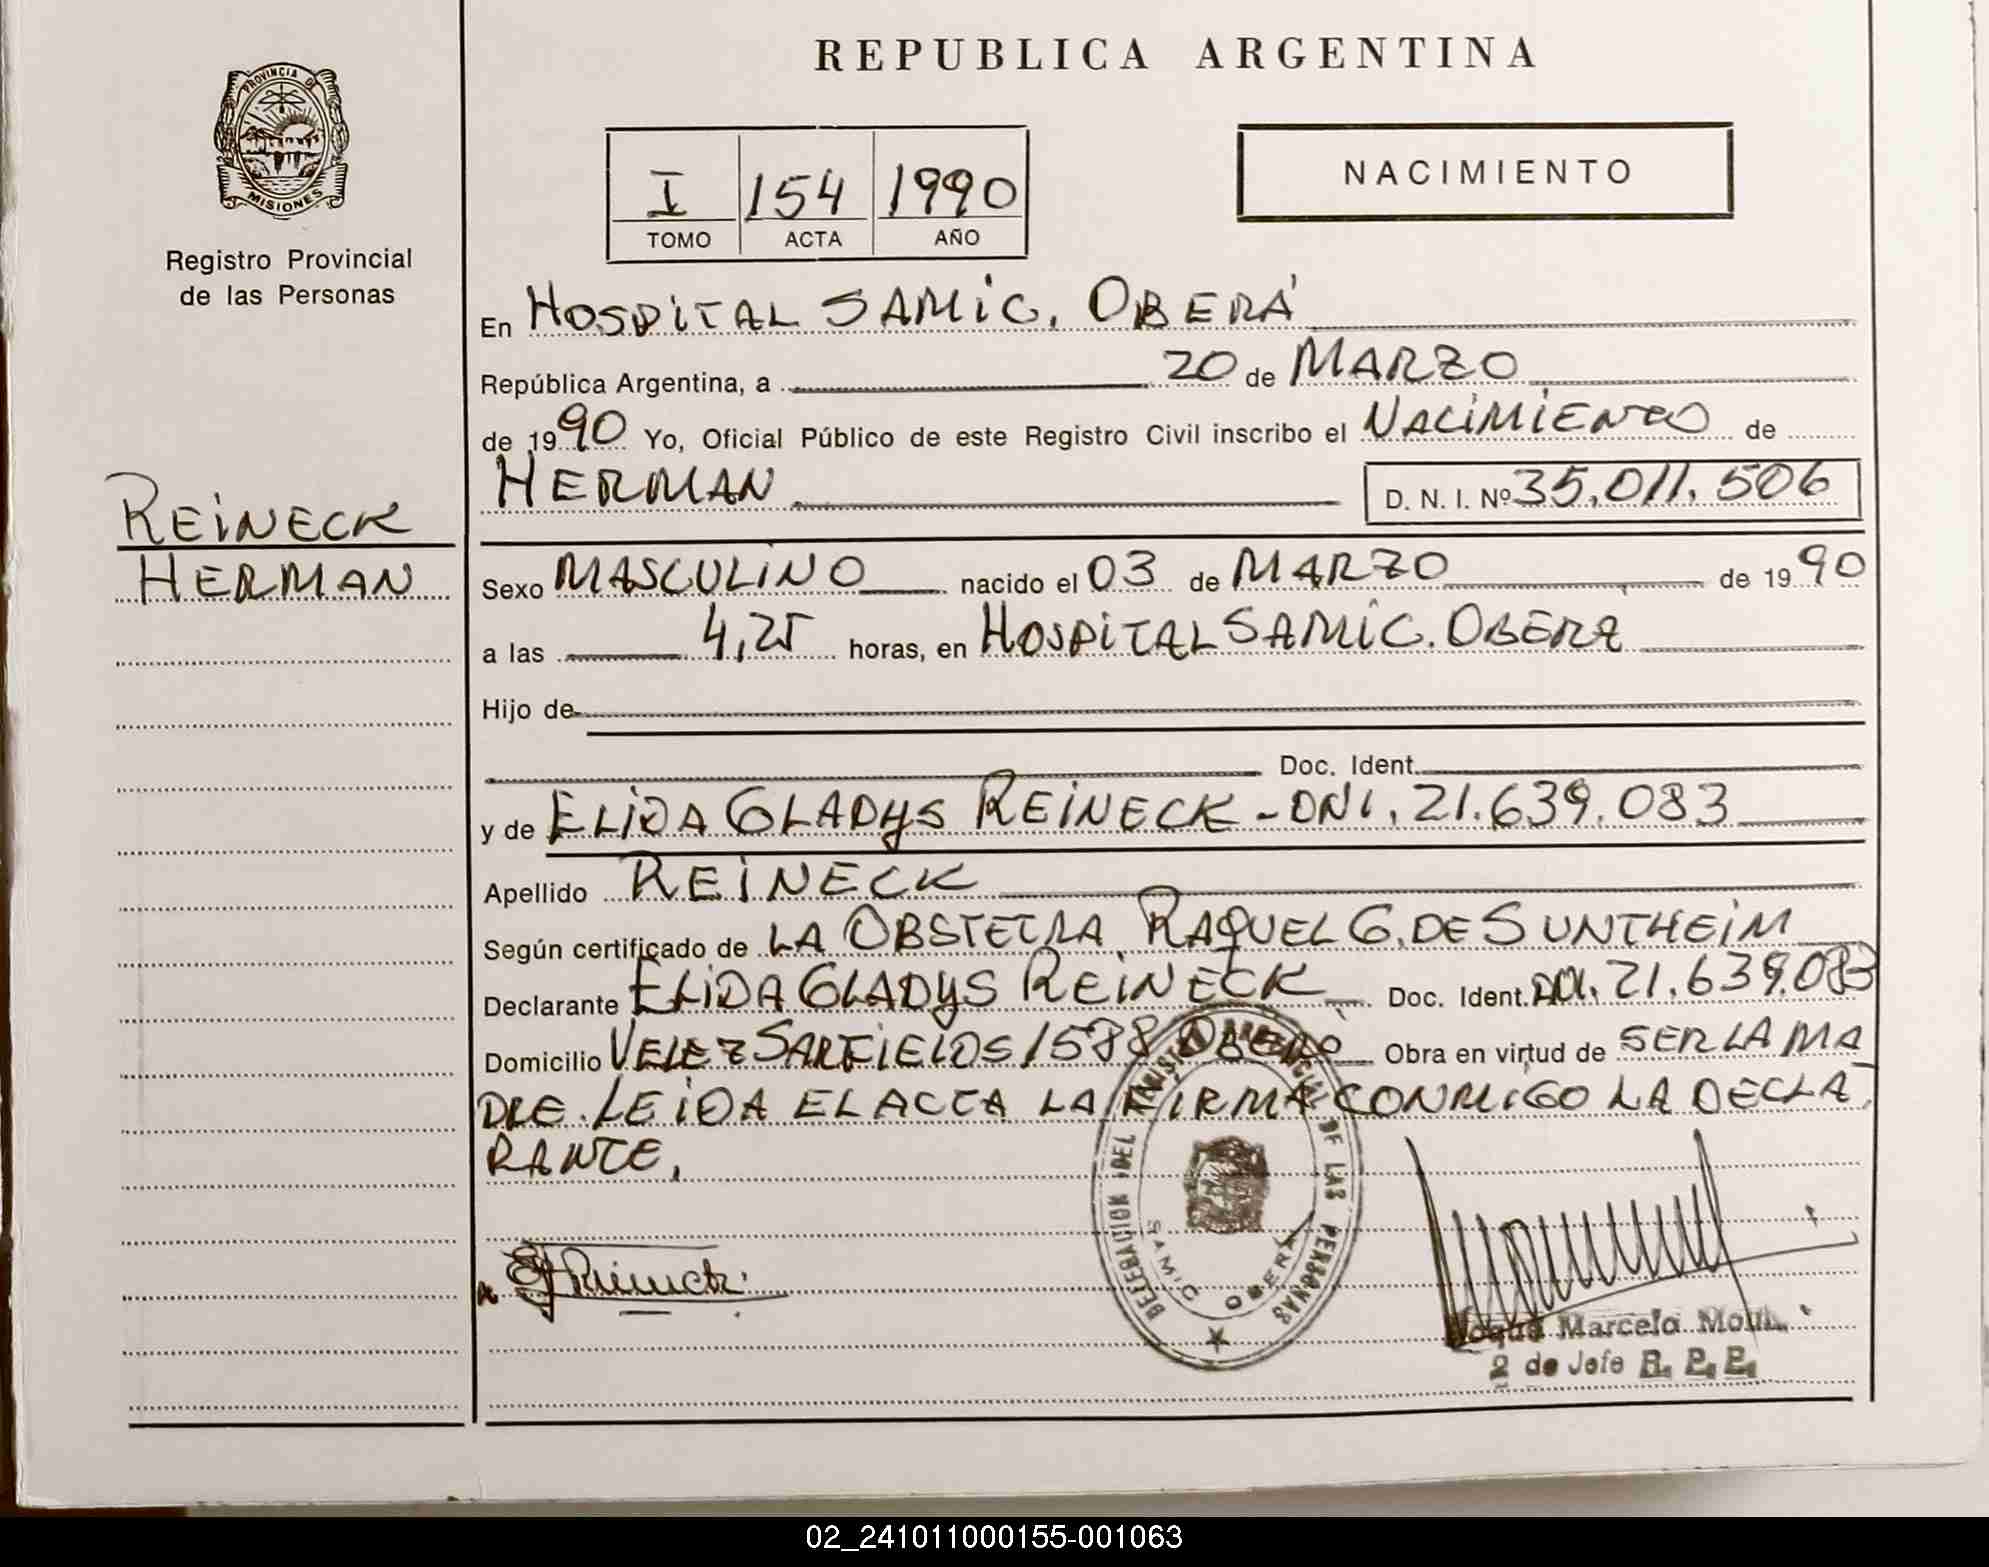 REPUBLICA ARGENTINA
PROVINCIA DE MISIONES
Registro Provincial
de las Personas
I 154 1990
TOMO ACTA AÑO
NACIMIENTO
En HOSPITAL SAMIC. OBERÁ
República Argentina, a 20 de MARZO
de 1990 Yo, Oficial Público de este Registro Civil inscribo el NACIMIENTO de
HERMAN D. N. I. Nº 35.011.506
REINECK
HERMAN
Sexo MASCULINO nacido el 03 de MARZO de 1990
a las 4,25 horas, en HOSPITAL SAMIC. OBERA
Hijo de
Doc. Ident.
y de ELIDA GLADYS REINECK - DNI. 21.639.083
Apellido REINECK
Según certificado de LA OBSTETRA RAQUEL G. DE SUNTHEIM
Declarante ELIDA GLADYS REINECK Doc. Ident. DNI. 21.639.083
Domicilio VELEZ SARFIELDS 1588 OBERÁ Obra en virtud de SER LA MA
DRE. LEIDA EL ACTA LA FIRMA CONMIGO LA DECLA
RANTE.
DELEGACION DEL REGISTRO PROVINCIAL DE LAS PERSONAS
SAMIC OBERA
E Reineck
Roque Marcelo
2 de Jefe R. P. P.
02_241011000155-001063